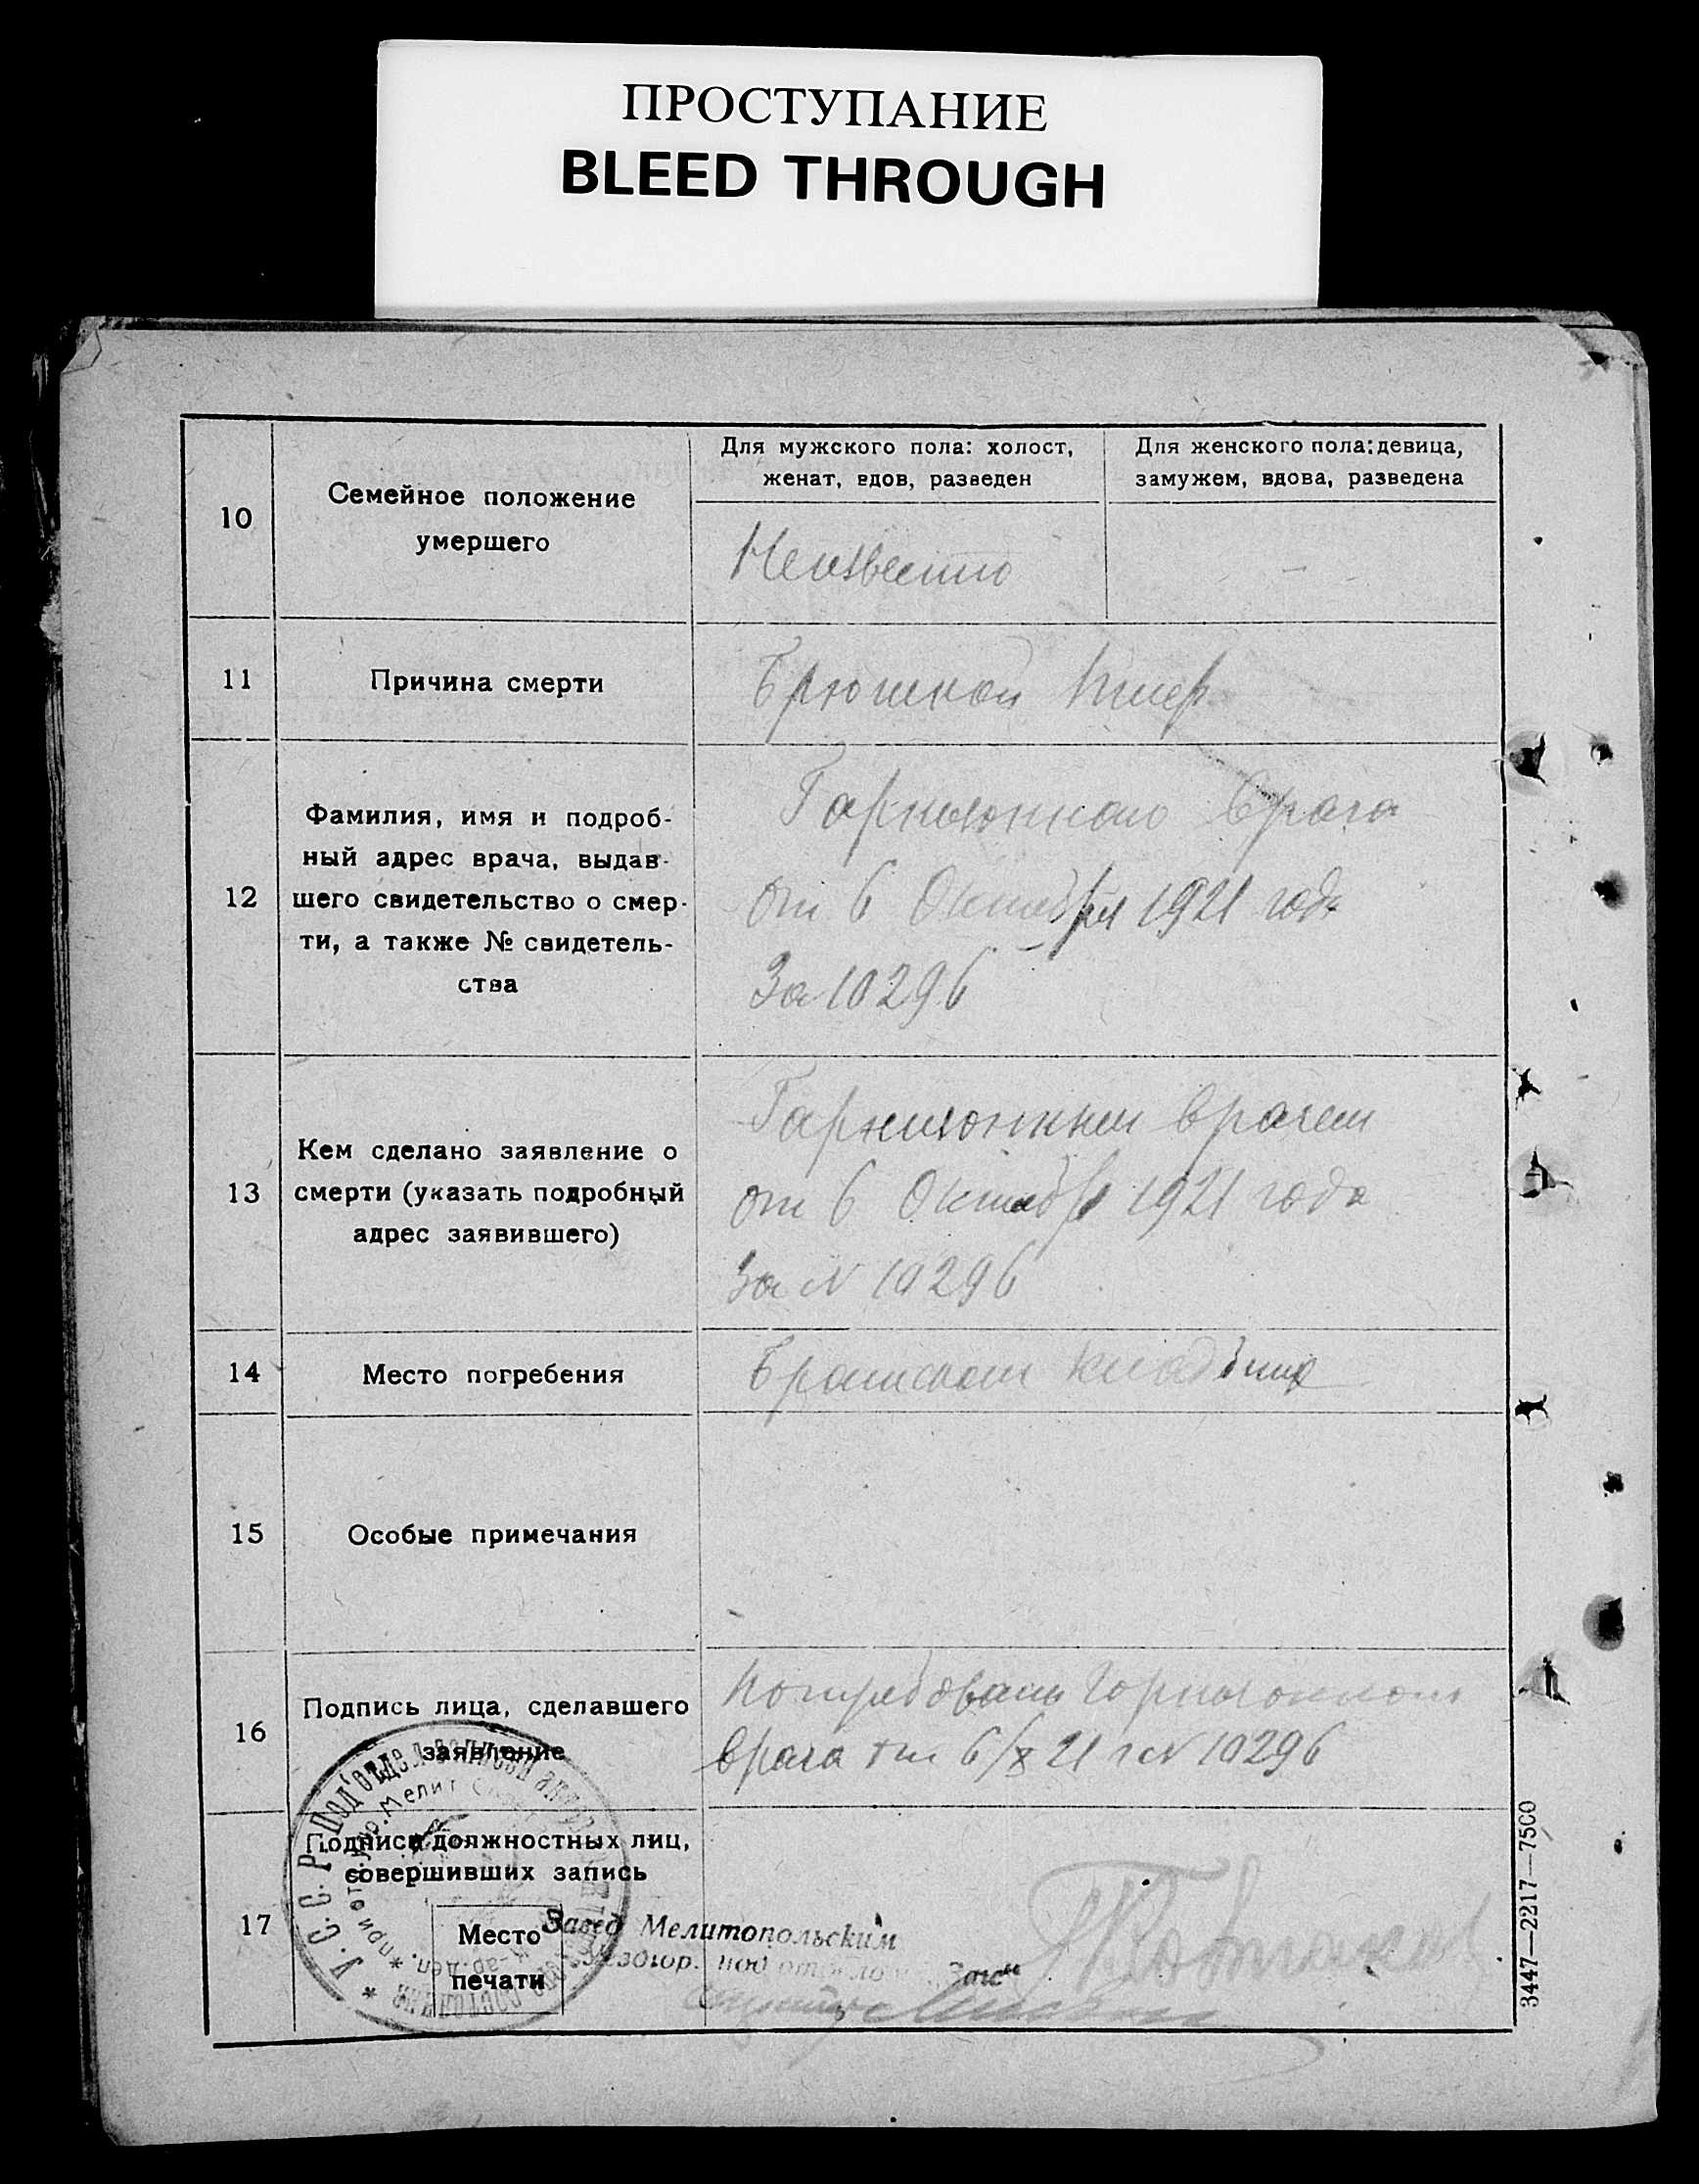 ПРОСТУПАНИЕ
BLEED THROUGH
10
Семейное положение
умершего
Для мужского пола: холост,
женат, вдов, разведен
Для женского пола: девица,
замужем, вдова, разведена
Неизвестно
—
11
Причина смерти
Брюшной тиф
12
Фамилия, имя и подроб-
ный адрес врача, выдав-
шего свидетельство о смер-
ти, а также № свидетель-
ства
Гарнизонного врача
от 6 Октября 1921 года
За 10296
13
Кем сделано заявление о
смерти (указать подробный
адрес заявившего)
Гарнизонным врачем
от 6 Октября 1921 года
За N 10296
14
Место погребения
Братском кладбище
15
Особые примечания
16
Подпись лица, сделавшего
заявление
Гарнизонного
врача от 6/X 21 г N 10296
17
Подписи должностных лиц,
совершивших запись
Место
печати
У.С.С.Р. Под'отдел записи актов гражданского состояния
Завед. Мелитопольским
под отделом „Загс“
3447—2217—7500